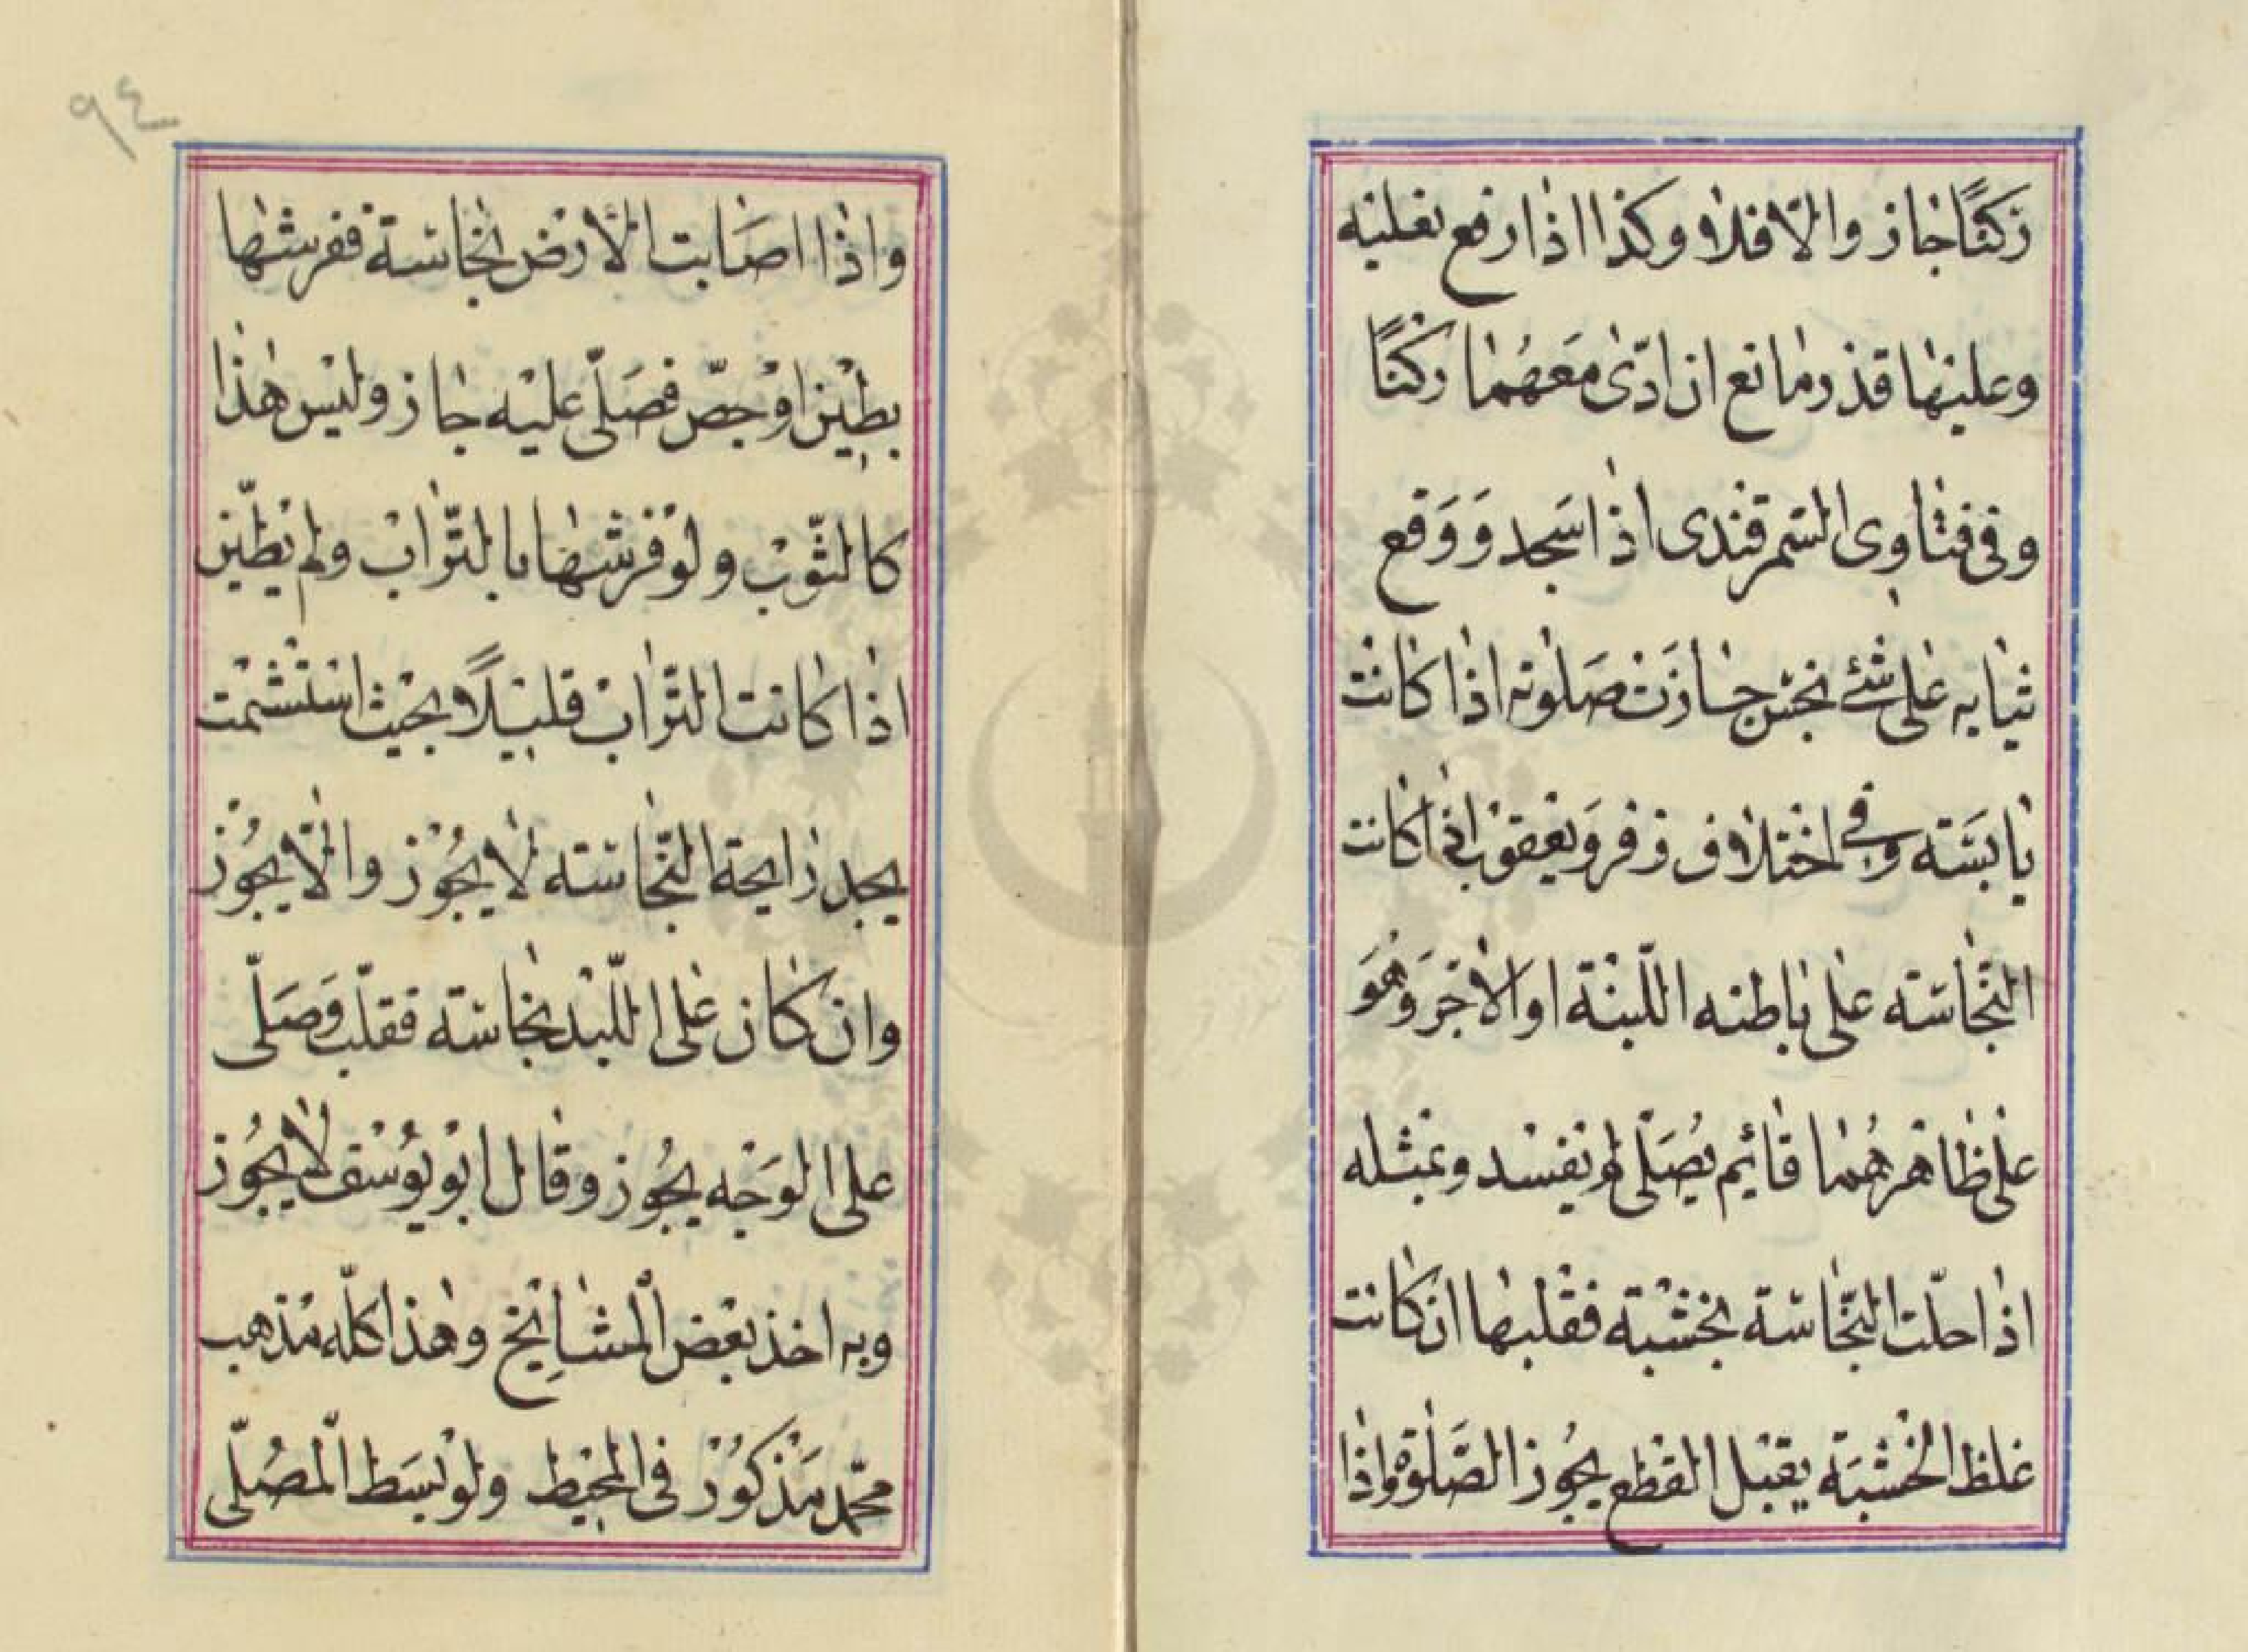 ركنًا جاز والّا فلا وكذا اذا رفع نعليه
وعليها قذر مانع ان ادّى مَعَهُما ركنًا
وفي فتاوى السّمرقندى اذا سَجد وَوَقع
ثيابه على شئ نجس جازت صَلوته اذا كانت
يابسَته وفي اختلاف زفر وَيعقوب اذا كانت
النّجاسته على باطنه اللّبنة او الآجر وَهُوَ
على ظاهرهُما قائيم يُصَلّى لم يفسد وبمثله
اذا حلّت النّجاسة بخشبة فقلبها ان كانت
غلظ الخشبَة يقبل القطع يجُوز الصَّلٰوة واذا
٩٤
واذا اصَابت الارض نجاسة ففرشها
بطين اوْ جصّ فصَلّى عليْه جاز وليْس هذا
كالثّوْب ولوْ فرشها بالتّراب ولم يطيّن
اذا كانت التّراب قليلًا بحيث اسْتشْمت
يجد رايحة النّجاسته لا يجُوْز والّا يجُوْز
وان كان على اللّبْد نجاسة فقلّب وَصَلّى
على الوَجْه يجُوز وقال ابوْ يوُسْف لا يجُوز
وبه اخذ بعْض الْمشايِخ وهٰذا كلّه مَذهب
محّمد مَذكوُرْ فى المحيْط ولوْ بسَط الْمصُلّى